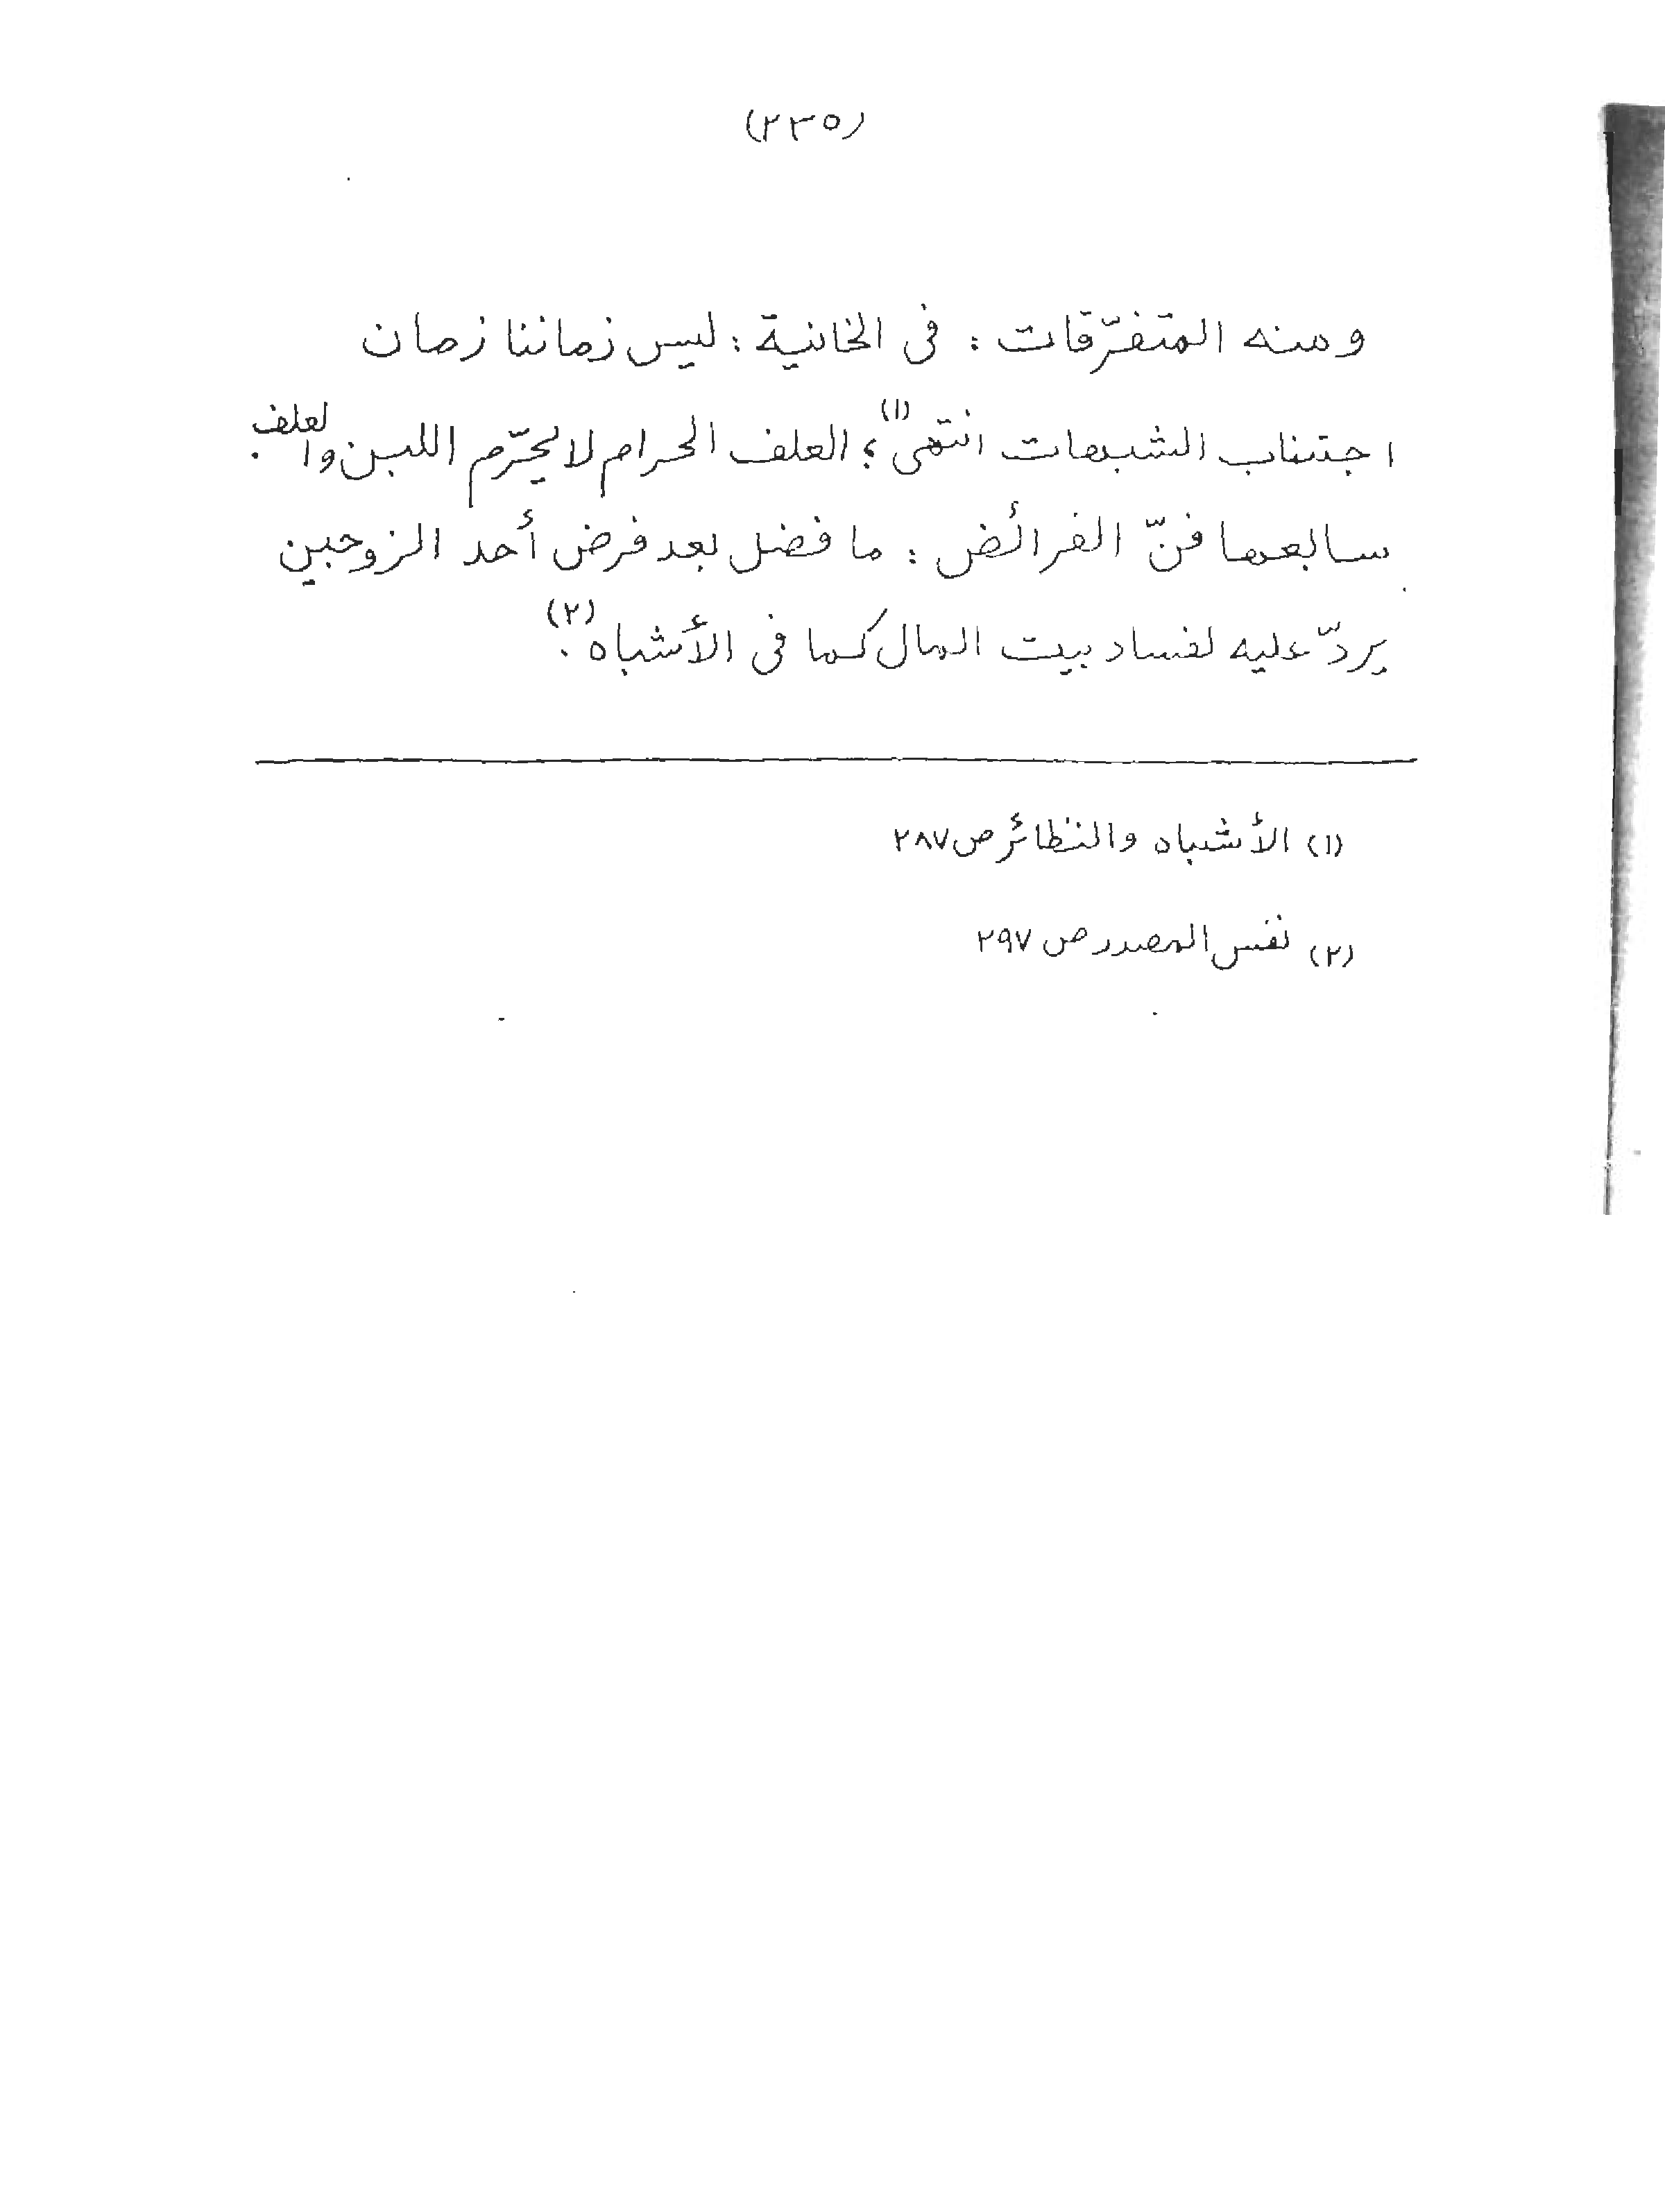 (٢٣٥)
ومنه المتفرّقات : فى الخانية : ليس زماننا زمان
اجتناب الشبهات انتهى(١)؛ العلف الحرام لا يحرّم اللبن والعلف.
سابعها فنّ الفرائض : ما فضل بعد فرض أحد الزوجين
يردّ عليه لفساد بيت المال كما فى الأشباه(٢).
(١) الأشباه والنظائر ص ٢٨٧
(٢) نفس المصدر ص ٢٩٧